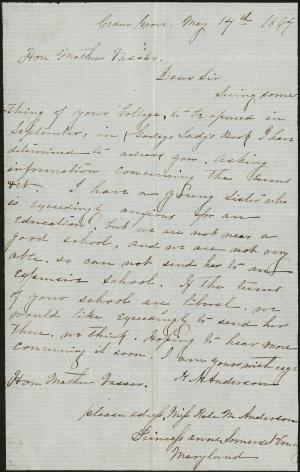 Cedar Grove. May 14th 186
Hon Mathew Vassar.
Dear Sir
Seeing some
thing of your College, to be opened in
September, in Godeys Lady's Book I have
determined to adress you. asking
information concerning the terms
&ct. I have a young Sister who
is exceedingly anxious for an
education, but we are not near a
good school, and we are not very
able. so can not send her to any
expensive school. If the terms
of your school are liberal. we
would like exceedingly to send her
there. we think. Hoping to hear more
concerning it soon. I am yours with
K. M Anderson
Hon Mathew Vassar.
please adress, Miss Kate M Anderson
Princess anne, Somerset County
Maryland